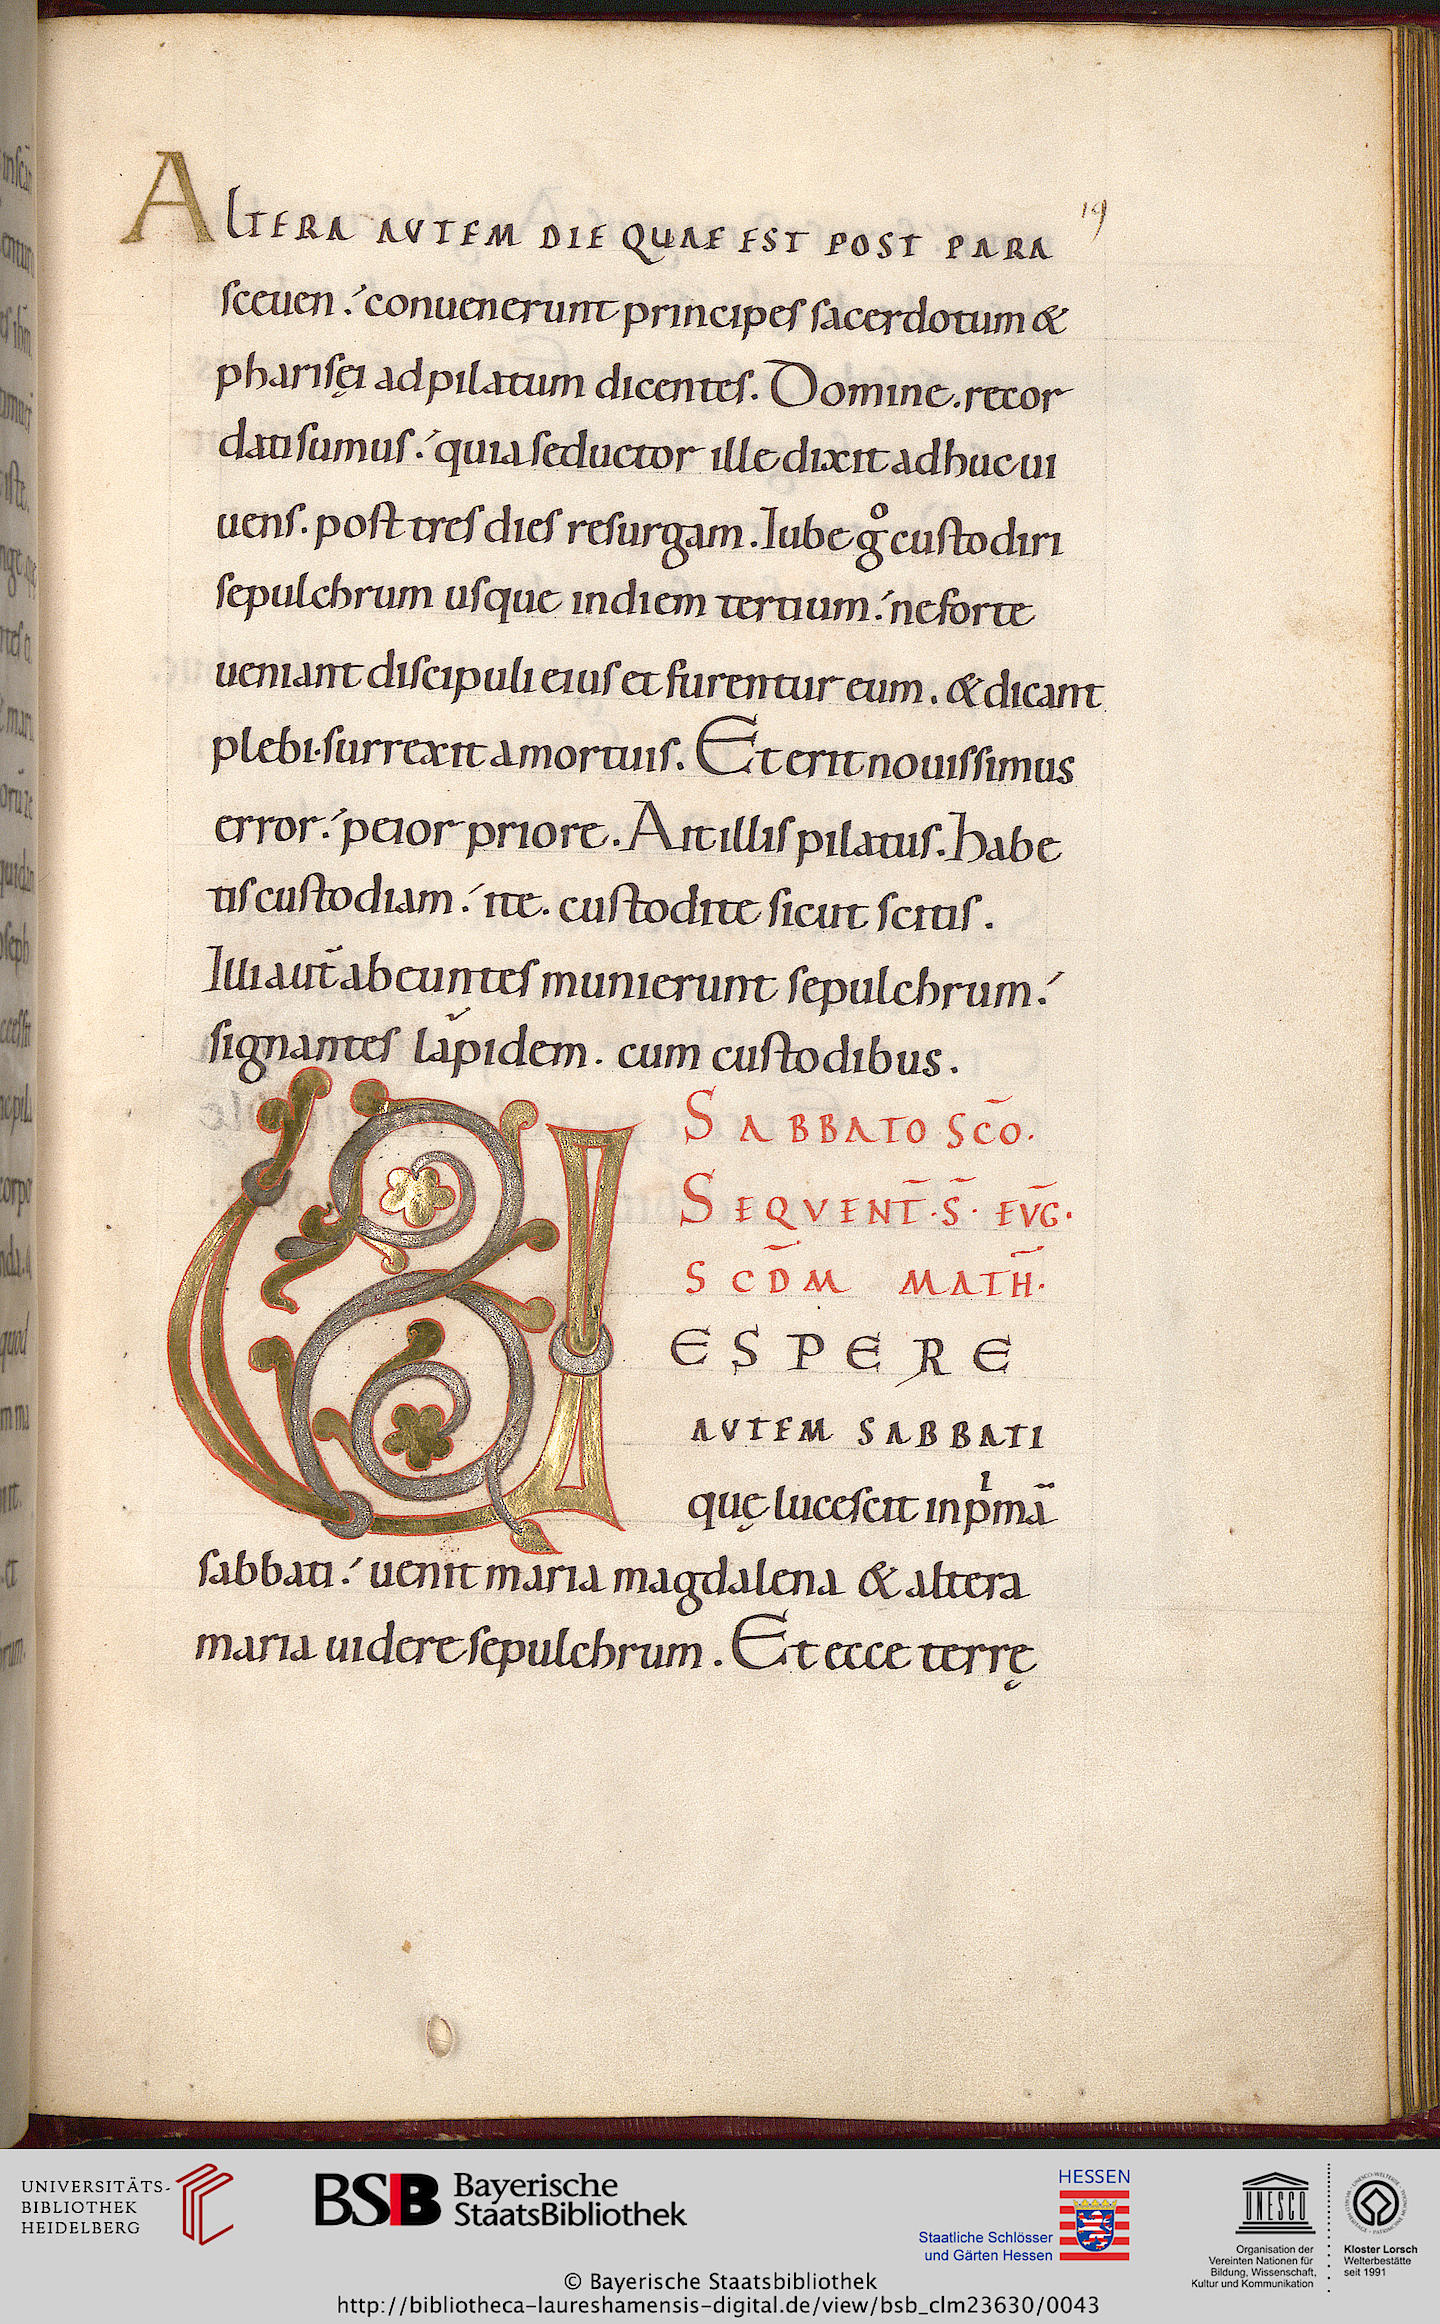 19
ALTERA AVTEM DIE QUAE EST POST PARA
sceuen. conuenerunt principes sacerdotum &
pharisęi ad pilatum dicentes. Domine. recor
dati sumus. quia seductor ille dixit adhuc ui
uens. post tres dies resurgam. Iube gͦ custodiri
sepulchrum usque indiem tertium. ne forte
ueniant discipuli eius et furentur eum. & dicant
plebi. surrexit a mortuis. Et erit nouissimus
error. peior priore. Ait illis pilatus. habe
tis custodiam. ite. custodite sicut scitis.
Illi aut̄ abeuntes munierunt sepulchrum.
signantes lapidem. cum custodibus.
SABBATO SC̄O.
SEQVENT̄. S̄. EVḠ.
SCD̄M MATH̄.
V ESPERE
AVTEM SABBATI
quę lucescit in pͥmā
sabbati. uenit maria magdalena & altera
maria uidere sepulchrum. Et ecce terrę
UNIVERSITÄTS-
BIBLIOTHEK
HEIDELBERG
BSB Bayerische
StaatsBibliothek
HESSEN
Staatliche Schlösser
und Gärten Hessen
UNESCO
Organisation der
Vereinten Nationen für
Bildung, Wissenschaft,
Kultur und Kommunikation
Kloster Lorsch
Welterbestätte
seit 1991
© Bayerische Staatsbibliothek
http://bibliotheca-laureshamensis-digital.de/view/bsb_clm23630/0043